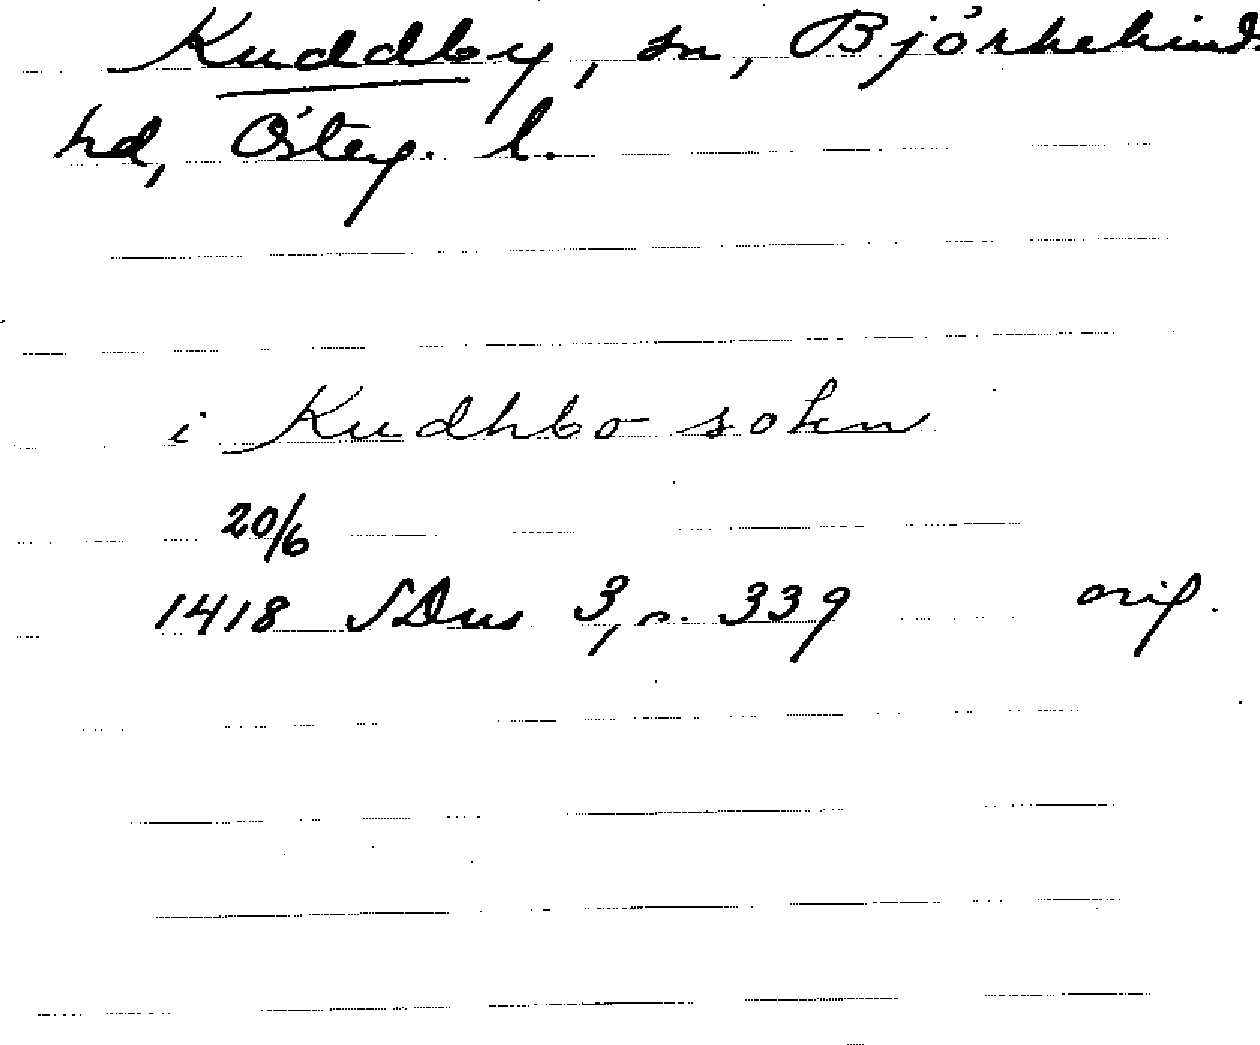 Kuddby, sn, Björkekinds
hd, Österg. l.
i Kudhbo sokn
20/6
1418 SDns 3, s. 339 orig.